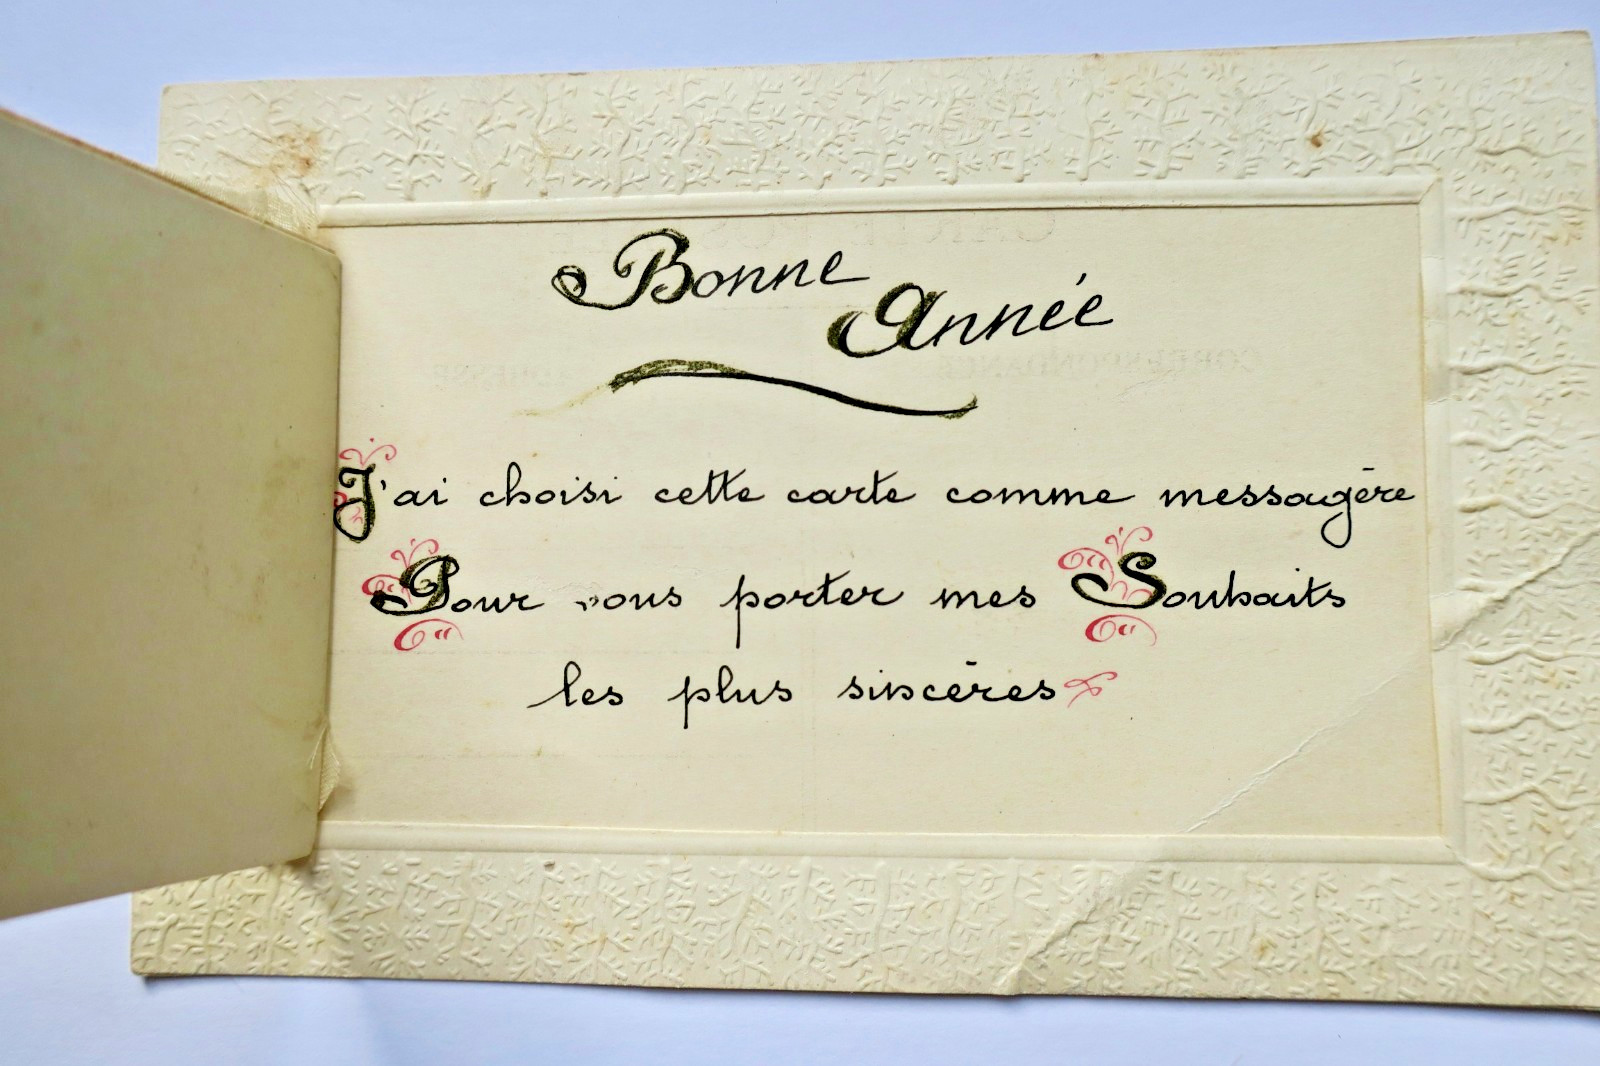 Bonne
Année
J'ai choisi cette carte comme messagère
Pour vous porter mes Souhaits
les plus sincères